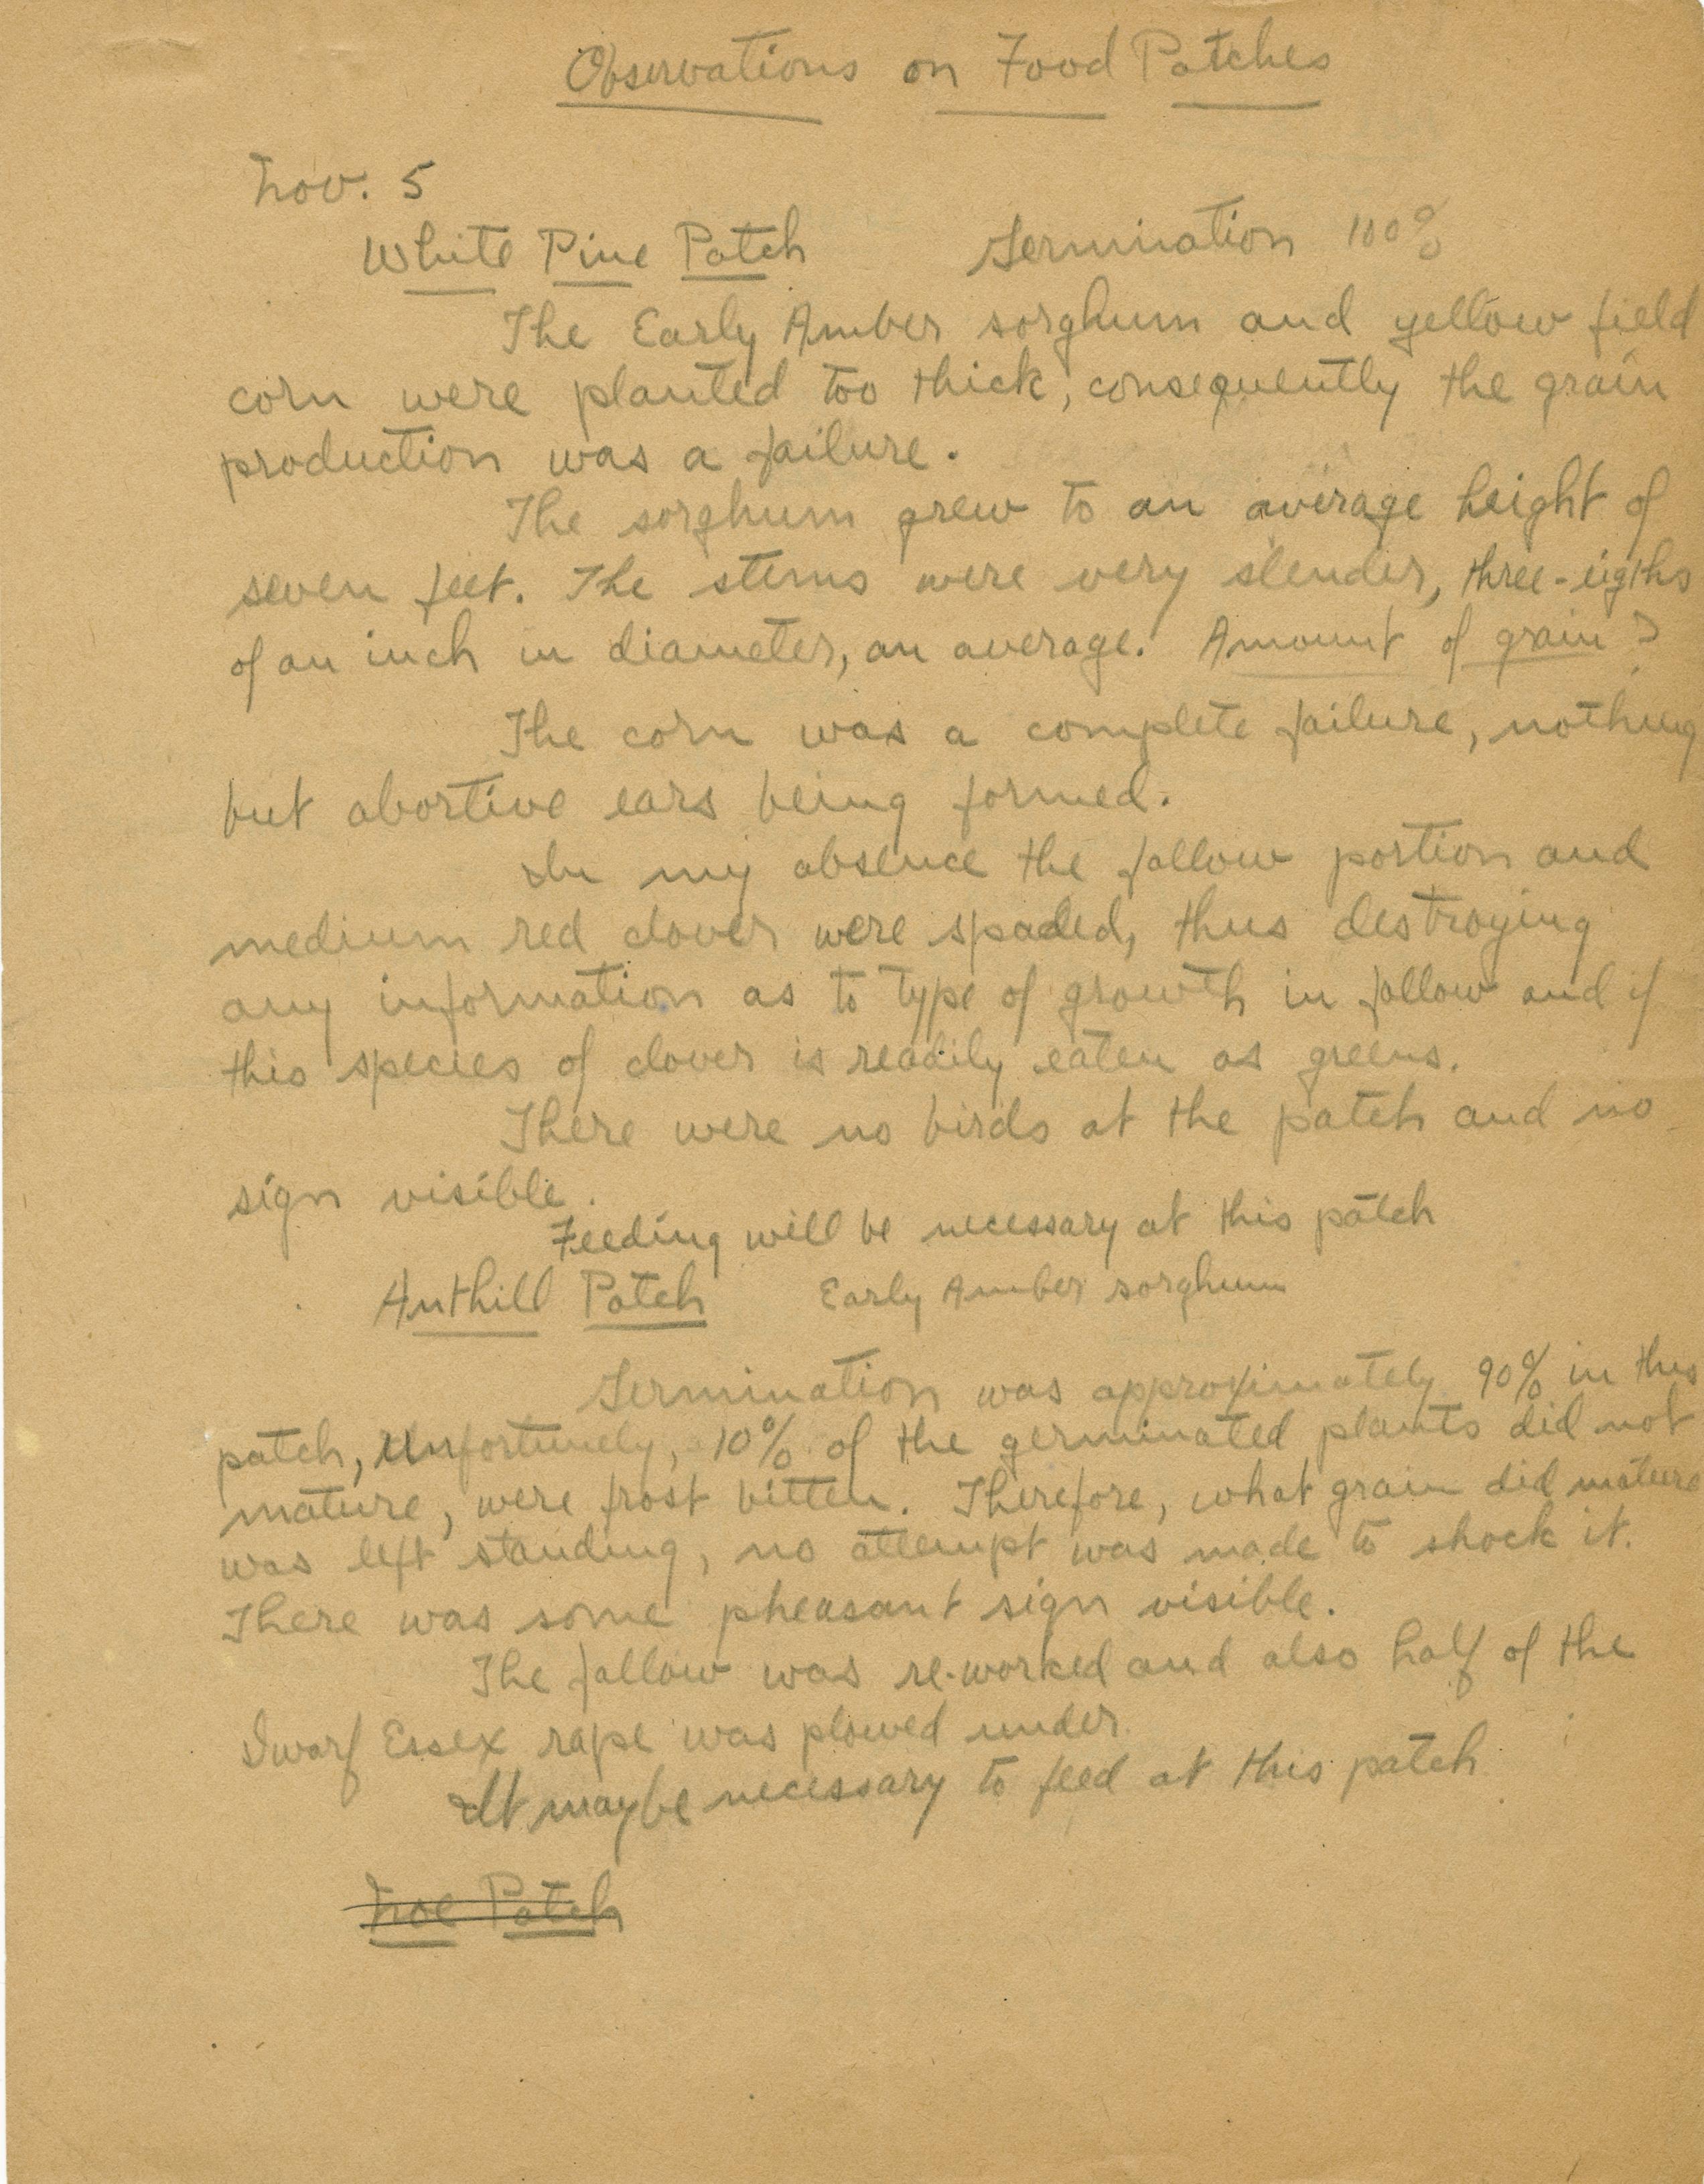 Observations on Food Patches
Nov. 5
White Pine Patch Germination 100%
The Early Amber sorghum and yellow field
corn were planted too thick, consequently the grain
production was a failure.
The sorghum grew to an average height of
seven feet. The stems were very slender, three-eigths
of an inch in diameter, an average. Amount of grain?
The corn was a complete failure, nothing
but abortive ears being formed.
In my absence the fallow portion and
medium red clover were spaded, thus destroying
any information as to type of growth in fallow and if
this species of clover is readily eaten as greens.
There were no birds at the patch and no
sign visible.
Feeding will be necessary at this patch
Anthill Patch Early Amber sorghum
Germination was approximately 90% in this
patch, Unfortunely, 10% of the germinated plants did not
mature, were frost bitten. Therefore, what grain did mature
was left standing, no attempt was made to shock it.
There was some pheasant sign visible.
The fallow was re-worked and also half of the
Dwarf Essex rape was plowed under.
It maybe necessary to feed at this patch
Noe Patch